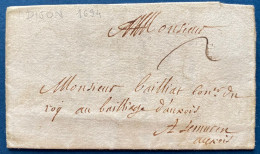 DIJON 1694
A Monsieur
2
Monsieur Cailliat con.er du
roy au bailliage d'auxois
A Semur en
auxois